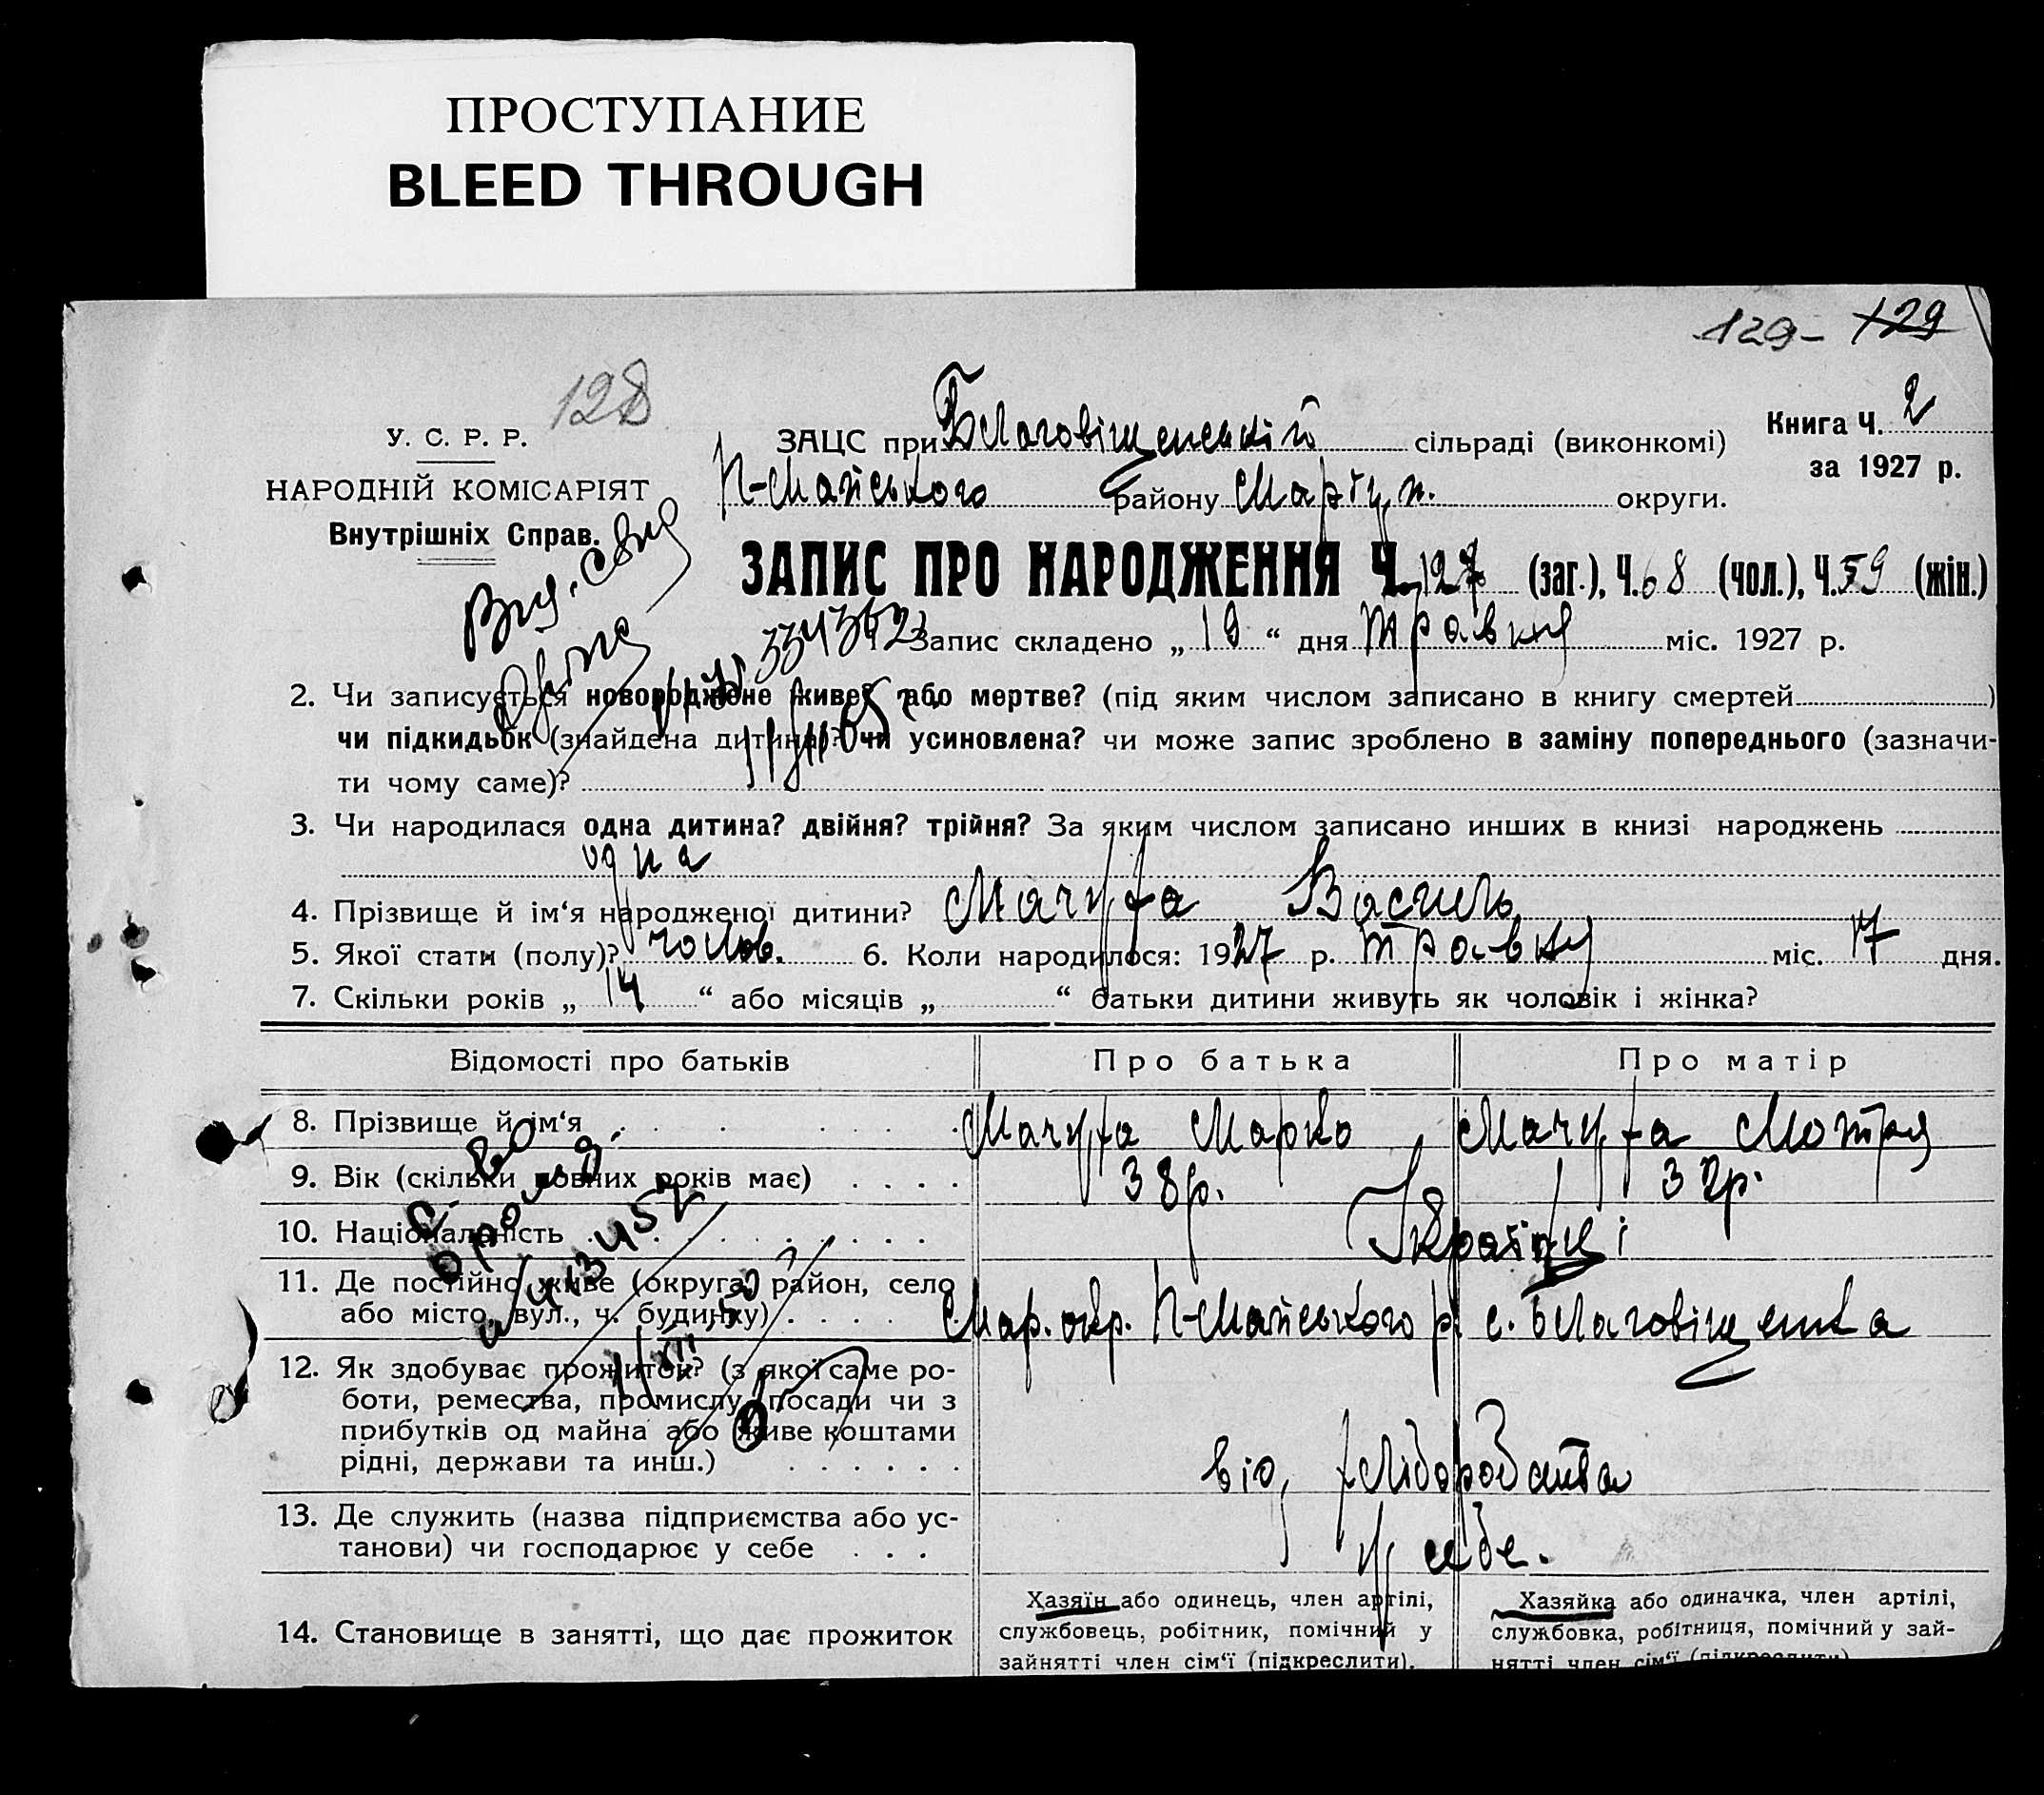 ПРОСТУПАНИЕ
BLEED THROUGH
129– 129
128
У. С. Р. Р.
НАРОДНІЙ КОМІСАРІЯТ
Внутрішніх Справ.
ЗАЦС при Благовіщенській сільраді (виконкомі)
Книга Ч. 2
за 1927 р.
П-Майського району Маріуп. округи.
ЗАПИС ПРО НАРОДЖЕННЯ Ч. 127 (заг.), Ч. 68 (чол.), Ч. 59 (жін.)
Запис складено „ 19 “ дня травня міс. 1927 р.
2. Чи записується новороджене живе? або мертве? (під яким числом записано в книгу смертей )
чи підкидьок (знайдена дитина)? чи усиновлена? чи може запис зроблено в заміну попереднього (зазначи-
ти чому саме)?
3. Чи народилася одна дитина? двійня? трійня? За яким числом записано инших в книзі народжень
одна
4. Прізвище й ім‘я народженої дитини? Мачуфа Василь
5. Якої стати (полу)? чолов. 6. Коли народилося: 1927 р. травня міс. 17 дня.
7. Скільки років „ 14 “ або місяців „ “ батьки дитини живуть як чоловік і жінка?
Відомості про батьків Про батька Про матір
8. Прізвище й ім‘я Мачуфа Марко Мачуфа Мотря
9. Вік (скільки повних років має) 38р. 32р.
10. Національність Українці
11. Де постійно живе (округа, район, село
або місто, вул., ч. будинку) Мар. окр. П-Майського р. с. Благовіщенка
12. Як здобуває прожиток? (з якої саме ро-
боти, ремества, промислу, посади чи з
прибутків од майна або живе коштами
рідні, держави та инш.) від хліборобства
13. Де служить (назва підприємства або ус-
танови) чи господарює у себе у себе.
14. Становище в занятті, що дає прожиток
Хазяїн або одинець, член артілі,
службовець, робітник, помічний у
зайнятті член сім‘ї (підкреслити).
Хазяйка або одиначка, член артілі,
службовка, робітниця, помічний у зай-
нятті член сім‘ї (підкреслити)